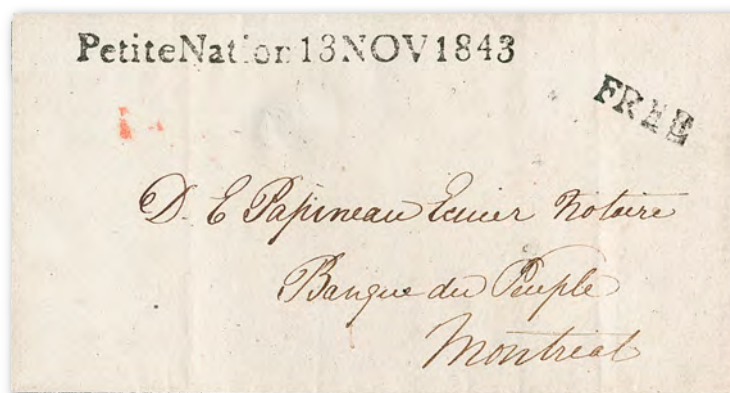 PetiteNation 13NOV1843
FREE
D. E Papineau Ecuier Notaire
Banque du Peuple
Montreal